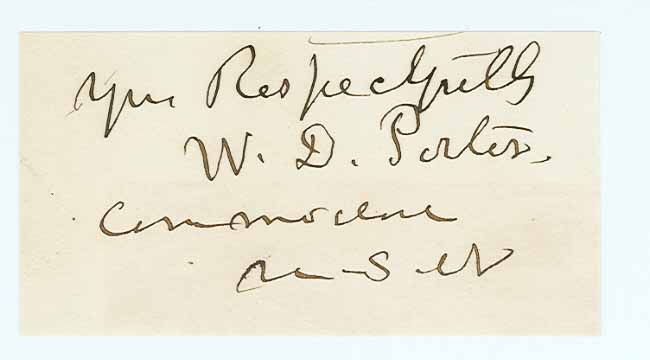 Your Respectfully
W. D. Porter.
Commodore
U S N